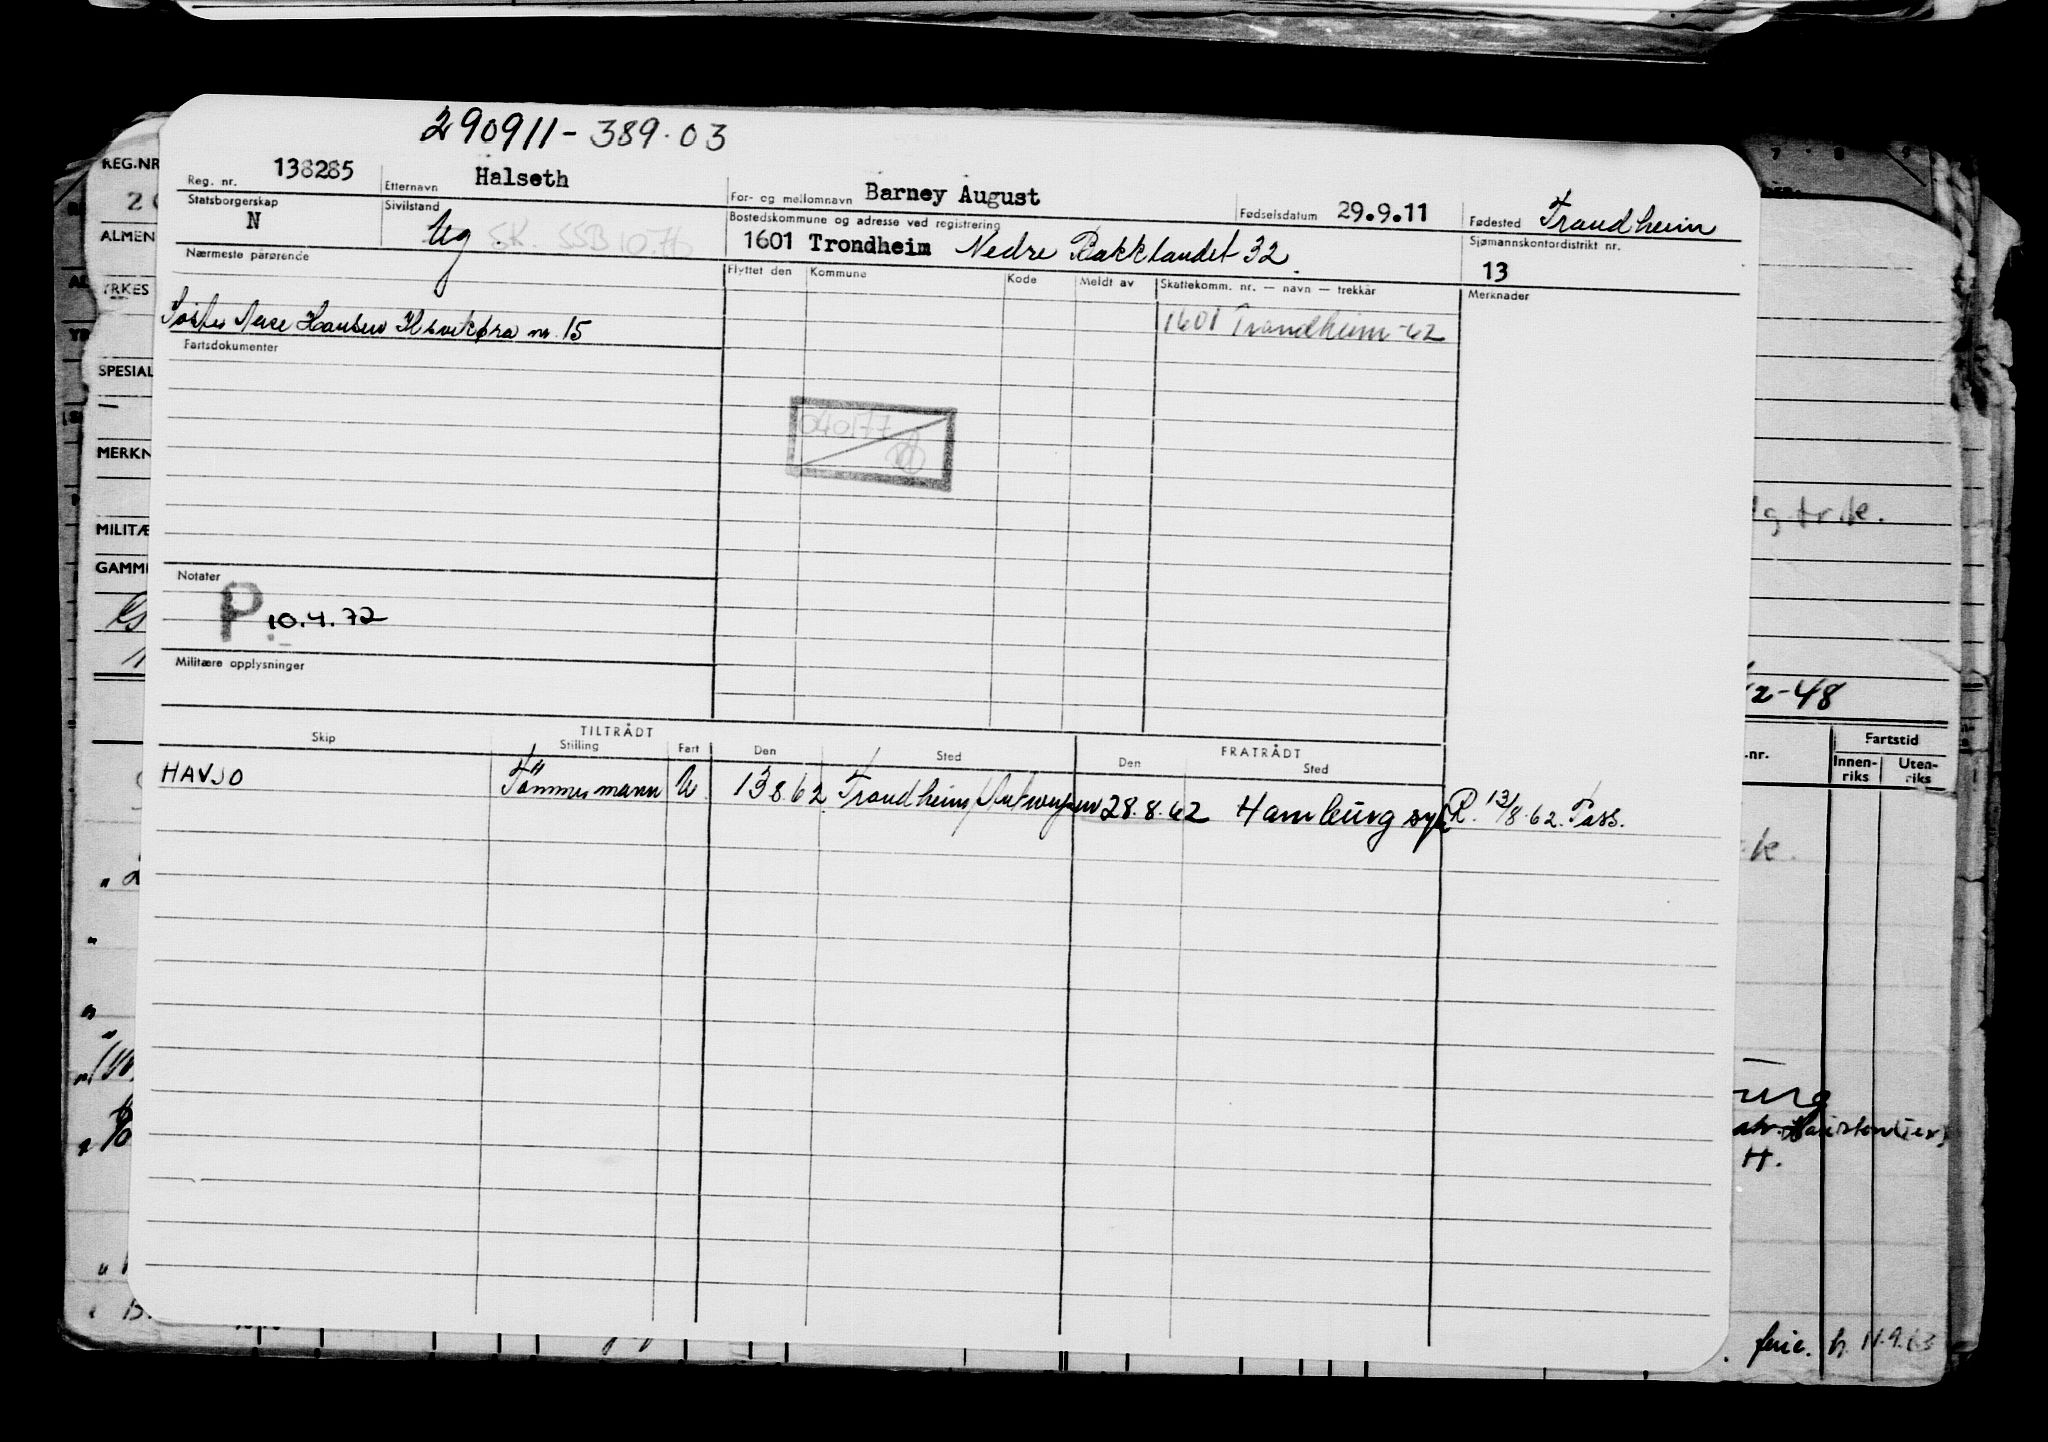 290911-389.03
Reg. nr. 138285 Etternavn Halseth For- og mellomnavn Barney August Fødselsdatum 29.9.11 Fødested Trondheim
Statsborgerskap N Sivilstand Ug SK. SSB 10.76 Bostedskommune og adresse ved registrering 1601 Trondheim Nedre Bakklandet 32 Sjømannskontordistrikt nr. 13
Nærmeste pårørende Flyttet den Kommune Kode Meldt av Skattekomm. nr. — navn — trekkår Merknader
Hansen nr. 15 1601 Trondheim-62
Fartsdokumenter
040177
Notater
P. 10.4.72
Militære opplysninger
TILTRÅDT FRATRÅDT
Skip Stilling Fart Den Sted Den Sted
HAVJO Tömmermann U 13.8.62 Trondheim/Antwerpen 28.8.62 Hamburg syk R. 13/8.62. Pass.
REG.NR
ALMEN
YRKES
SPESIAL
MERKN
MILITÆ
GAMM
lg.tr.k.
2-48
.nr. Fartstid
Innen-riks Uten-riks
urg
H.
h. 11.9.63